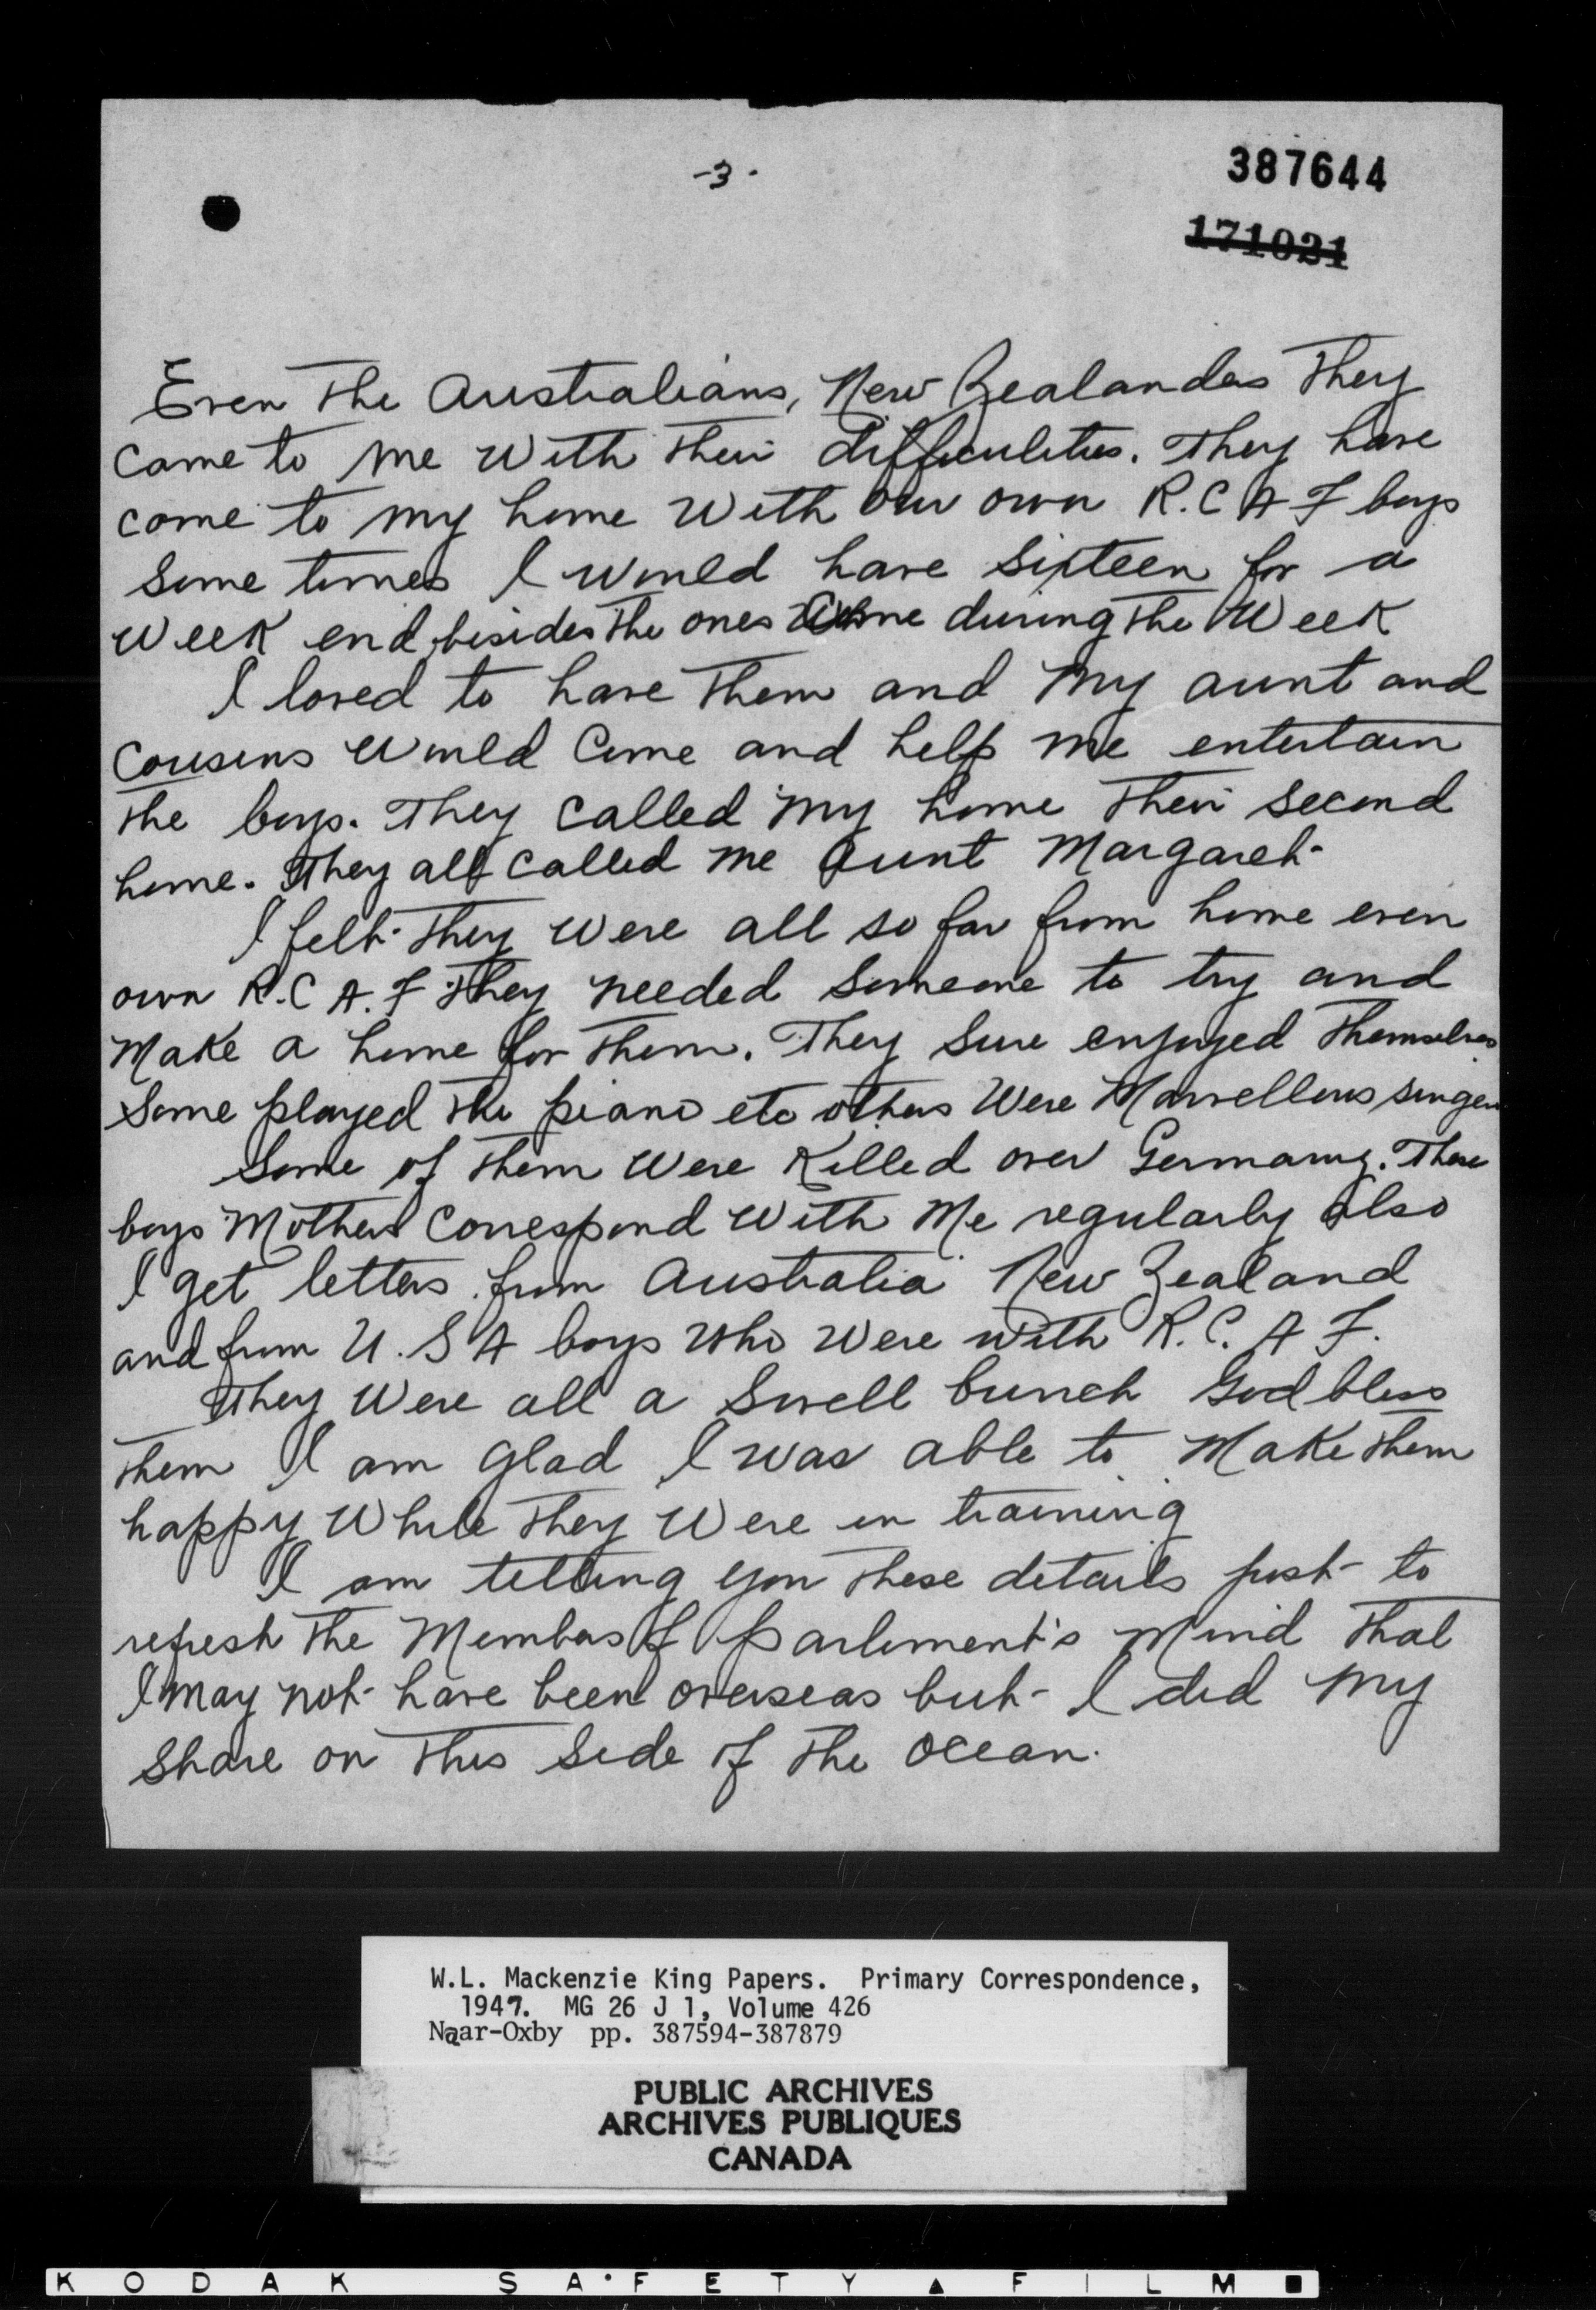 -3-
387644
171021
Even the Australians, New Zealanders they
came to me with their difficulities. They have
come to my home with our own R.C A F boys
some times I would have sixteen for a
week end, besides the ones come during the week
I loved to have them and my aunt and
cousins would come and help me entertain
the boys. They called my home their second
home. They all called me Aunt Margaret
I felt they were all so far from home even
own R.C A. F they needed someone to try and
make a home for them. They sure enjoyed themselves
Some played the piano etc others were marvellous singers
Some of them were killed over Germany. These
boys mothers correspond with me regularly also
I get letters from Australia New Zealand
and from U. S A boys who were with R. C. A F.
They were all a swell bunch God bless
them I am glad I was able to make them
happy while they were in training
I am telling you these details just to
refresh the Members of Parliment's mind that
I may not have been overseas but I did my
share on this side of the ocean.
W.L. Mackenzie King Papers. Primary Correspondence,
1947. MG 26 J 1, Volume 426
Naar-Oxby pp. 387594-387879
PUBLIC ARCHIVES
ARCHIVES PUBLIQUES
CANADA
KODAK SAFETY FILM